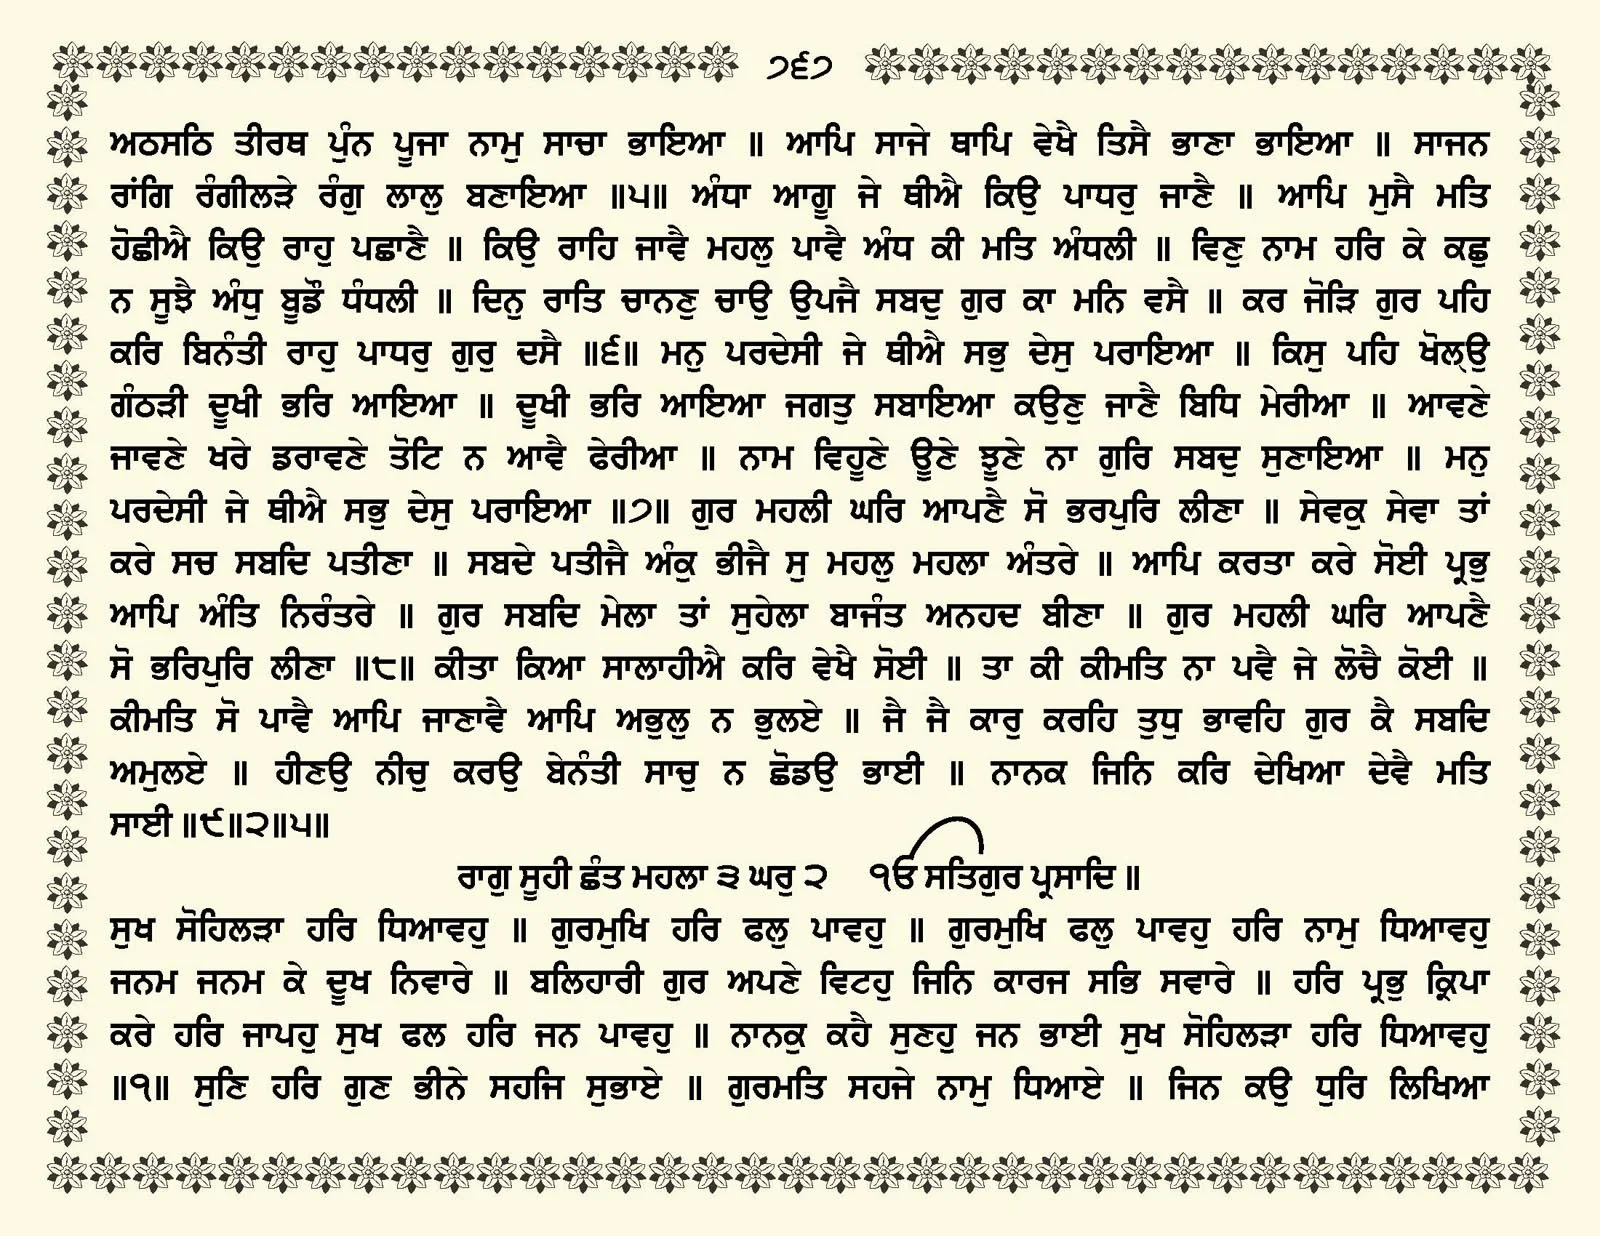 ੭੬੭
ਅਠਸਠਿ ਤੀਰਥ ਪੁੰਨ ਪੂਜਾ ਨਾਮੁ ਸਾਚਾ ਭਾਇਆ ॥ ਆਪਿ ਸਾਜੇ ਥਾਪਿ ਵੇਖੈ ਤਿਸੈ ਭਾਣਾ ਭਾਇਆ ॥ ਸਾਜਨ
ਰਾਂਗਿ ਰੰਗੀਲੜੇ ਰੰਗੁ ਲਾਲੁ ਬਣਾਇਆ ॥੫॥ ਅੰਧਾ ਆਗੂ ਜੇ ਥੀਐ ਕਿਉ ਪਾਧਰੁ ਜਾਣੈ ॥ ਆਪਿ ਮੁਸੈ ਮਤਿ
ਹੋਛੀਐ ਕਿਉ ਰਾਹੁ ਪਛਾਣੈ ॥ ਕਿਉ ਰਾਹਿ ਜਾਵੈ ਮਹਲੁ ਪਾਵੈ ਅੰਧ ਕੀ ਮਤਿ ਅੰਧਲੀ ॥ ਵਿਣੁ ਨਾਮ ਹਰਿ ਕੇ ਕਛੁ
ਨ ਸੂਝੈ ਅੰਧੁ ਬੂਡੌ ਧੰਧਲੀ ॥ ਦਿਨੁ ਰਾਤਿ ਚਾਨਣੁ ਚਾਉ ਉਪਜੈ ਸਬਦੁ ਗੁਰ ਕਾ ਮਨਿ ਵਸੈ ॥ ਕਰ ਜੋੜਿ ਗੁਰ ਪਹਿ
ਕਰਿ ਬਿਨੰਤੀ ਰਾਹੁ ਪਾਧਰੁ ਗੁਰੁ ਦਸੈ ॥੬॥ ਮਨੁ ਪਰਦੇਸੀ ਜੇ ਥੀਐ ਸਭੁ ਦੇਸੁ ਪਰਾਇਆ ॥ ਕਿਸੁ ਪਹਿ ਖੋਲ੍ਹਉ
ਗੰਠੜੀ ਦੂਖੀ ਭਰਿ ਆਇਆ ॥ ਦੂਖੀ ਭਰਿ ਆਇਆ ਜਗਤੁ ਸਬਾਇਆ ਕਉਣੁ ਜਾਣੈ ਬਿਧਿ ਮੇਰੀਆ ॥ ਆਵਣੇ
ਜਾਵਣੇ ਖਰੇ ਡਰਾਵਣੇ ਤੋਟਿ ਨ ਆਵੈ ਫੇਰੀਆ ॥ ਨਾਮ ਵਿਹੂਣੇ ਊਣੇ ਝੂਣੇ ਨਾ ਗੁਰਿ ਸਬਦੁ ਸੁਣਾਇਆ ॥ ਮਨੁ
ਪਰਦੇਸੀ ਜੇ ਥੀਐ ਸਭੁ ਦੇਸੁ ਪਰਾਇਆ ॥੭॥ ਗੁਰ ਮਹਲੀ ਘਰਿ ਆਪਣੈ ਸੋ ਭਰਪੁਰਿ ਲੀਣਾ ॥ ਸੇਵਕੁ ਸੇਵਾ ਤਾਂ
ਕਰੇ ਸਚ ਸਬਦਿ ਪਤੀਣਾ ॥ ਸਬਦੇ ਪਤੀਜੈ ਅੰਕੁ ਭੀਜੈ ਸੁ ਮਹਲੁ ਮਹਲਾ ਅੰਤਰੇ ॥ ਆਪਿ ਕਰਤਾ ਕਰੇ ਸੋਈ ਪ੍ਰਭੁ
ਆਪਿ ਅੰਤਿ ਨਿਰੰਤਰੇ ॥ ਗੁਰ ਸਬਦਿ ਮੇਲਾ ਤਾਂ ਸੁਹੇਲਾ ਬਾਜੰਤ ਅਨਹਦ ਬੀਣਾ ॥ ਗੁਰ ਮਹਲੀ ਘਰਿ ਆਪਣੈ
ਸੋ ਭਰਿਪੁਰਿ ਲੀਣਾ ॥੮॥ ਕੀਤਾ ਕਿਆ ਸਾਲਾਹੀਐ ਕਰਿ ਵੇਖੈ ਸੋਈ ॥ ਤਾ ਕੀ ਕੀਮਤਿ ਨਾ ਪਵੈ ਜੇ ਲੋਚੈ ਕੋਈ ॥
ਕੀਮਤਿ ਸੋ ਪਾਵੈ ਆਪਿ ਜਾਣਾਵੈ ਆਪਿ ਅਭੁਲੁ ਨ ਭੁਲਏ ॥ ਜੈ ਜੈ ਕਾਰੁ ਕਰਹਿ ਤੁਧੁ ਭਾਵਹਿ ਗੁਰ ਕੈ ਸਬਦਿ
ਅਮੁਲਏ ॥ ਹੀਣਉ ਨੀਚੁ ਕਰਉ ਬੇਨੰਤੀ ਸਾਚੁ ਨ ਛੋਡਉ ਭਾਈ ॥ ਨਾਨਕ ਜਿਨਿ ਕਰਿ ਦੇਖਿਆ ਦੇਵੈ ਮਤਿ
ਸਾਈ ॥੯॥੨॥੫॥
ਰਾਗੁ ਸੂਹੀ ਛੰਤ ਮਹਲਾ ੩ ਘਰੁ ੨ ੴ ਸਤਿਗੁਰ ਪ੍ਰਸਾਦਿ ॥
ਸੁਖ ਸੋਹਿਲੜਾ ਹਰਿ ਧਿਆਵਹੁ ॥ ਗੁਰਮੁਖਿ ਹਰਿ ਫਲੁ ਪਾਵਹੁ ॥ ਗੁਰਮੁਖਿ ਫਲੁ ਪਾਵਹੁ ਹਰਿ ਨਾਮੁ ਧਿਆਵਹੁ
ਜਨਮ ਜਨਮ ਕੇ ਦੂਖ ਨਿਵਾਰੇ ॥ ਬਲਿਹਾਰੀ ਗੁਰ ਅਪਣੇ ਵਿਟਹੁ ਜਿਨਿ ਕਾਰਜ ਸਭਿ ਸਵਾਰੇ ॥ ਹਰਿ ਪ੍ਰਭੁ ਕ੍ਰਿਪਾ
ਕਰੇ ਹਰਿ ਜਾਪਹੁ ਸੁਖ ਫਲ ਹਰਿ ਜਨ ਪਾਵਹੁ ॥ ਨਾਨਕੁ ਕਹੈ ਸੁਣਹੁ ਜਨ ਭਾਈ ਸੁਖ ਸੋਹਿਲੜਾ ਹਰਿ ਧਿਆਵਹੁ
॥੧॥ ਸੁਣਿ ਹਰਿ ਗੁਣ ਭੀਨੇ ਸਹਜਿ ਸੁਭਾਏ ॥ ਗੁਰਮਤਿ ਸਹਜੇ ਨਾਮੁ ਧਿਆਏ ॥ ਜਿਨ ਕਉ ਧੁਰਿ ਲਿਖਿਆ